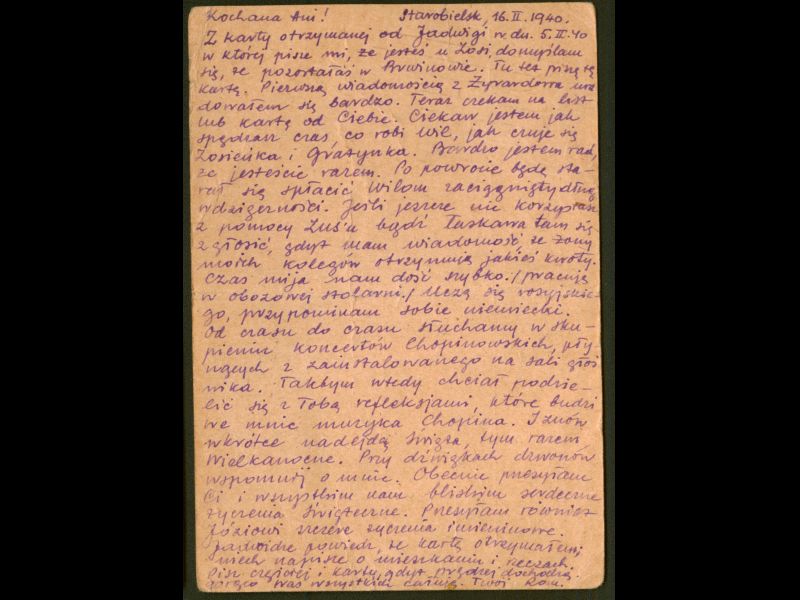 Kochana Ani! Starobielsk, 16.II.1940.
Z karty otrzymanej od Jadwigi w dn. 5.II.40
w której pisze mi, że jesteś u Zosi domyślam
się, że pozostałaś w Brwinowie. Tu też piszę tę
kartę. Pierwszą wiadomością z Żyrardowa ura
dowałem się bardzo. Teraz czekam na list
lub kartę od Ciebie. Ciekaw jestem jak
spędzasz czas, co robi Wil, jak czuje się
Zosieńka i Grażynka. Bardzo jestem rad,
że jesteście razem. Po powrocie będę sta-
rał się spłacić Wilom zaciągnięty dług
wdzięczności. Jeśli jeszcze nie korzystasz
z pomocy Zus'u bądź łaskawa tam się
zgłosić, gdyż mam wiadomość że żony
moich kolegów otrzymują jakieś kwoty.
Czas mija nam dość szybko. /pracuję
w obozowej stolarni./ Uczę się rosyjskie-
go, przypominam sobie niemiecki.
Od czasu do czasu słuchamy w sku-
pieniu koncertów Chopinowskich, pły-
nących z zainstalowanego na sali głoś
nika. Takbym wtedy chciał podzie-
lić się z Tobą refleksjami, które budzi
we mnie muzyka Chopina. Znów
wkrótce nadejdą święta, tym razem
Wielkanocne. Przy dźwiękach dzwonów
wspomnij o mnie. Obecnie przesyłam
Ci i wszystkim nam bliskim serdeczne
życzenia świąteczne. Przesyłam również
Józiowi szczere życzenia imieninowe.
Jadwidze powiedz, że kartę otrzymałem,
niech napisze o mieszkaniu i rzeczach.
Pisz częściej i karty, gdyż prędzej dochodzą.
was wszystkich całuję. Twój